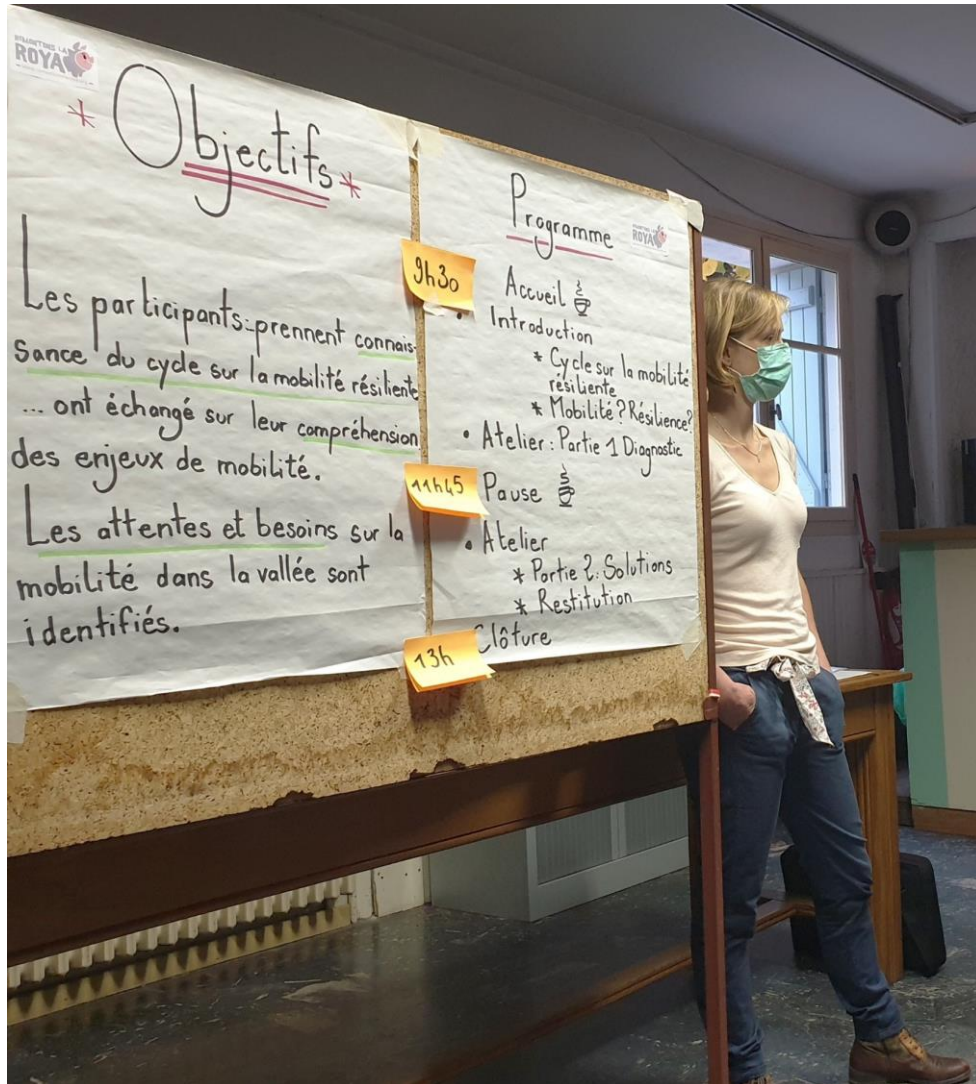 REMONTONS LA
ROYA
* Objectifs *
Les participants: prennent connais-
sance du cycle sur la mobilité résiliente
... ont échangé sur leur compréhension
des enjeux de mobilité.
Les attentes et besoins sur la
mobilité dans la vallée sont
identifiés.
Programme
ROYA
9h30
Accueil
• Introduction
* Cycle sur la mobilité
résiliente
* Mobilité? Résilience?
• Atelier: Partie 1 Diagnostic
11h45
Pause
• Atelier
* Partie 2: Solutions
* Restitution
13h
Clôture